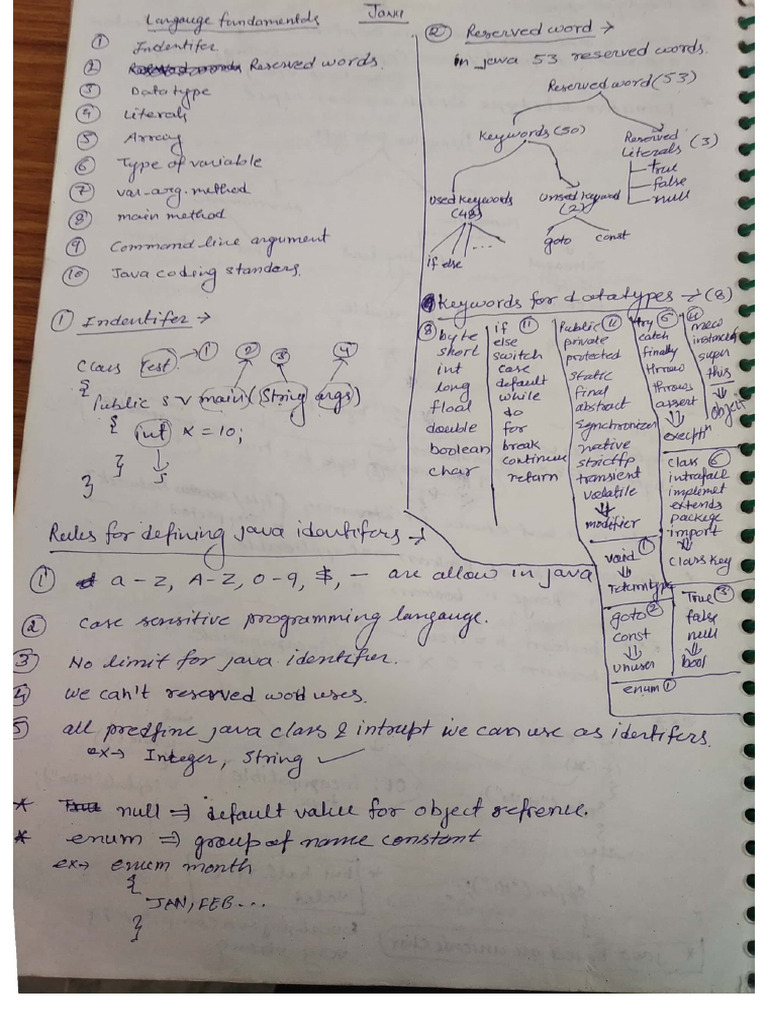 Langauge fundamentals
① Indentifer
② Reserved words.
③ Data type
④ Literals
⑤ Array
⑥ Type of variable
⑦ var-arg. method
⑧ main method
⑨ Command line argument
⑩ Java coding standers.
① Indentifer →
Class Test → ①
② ③ ④
{
Public s v main (String args)
{
int x = 10;
}
5
}
② Reserved word →
in java 53 reserved words.
Reserved word (53)
Keywords (50)
Reserved Literals (3)
true
false
null
Used Keywords (48)
if else ...
(2)
goto const
Keywords for datatypes → (8)
⑧ byte
short
int
long
float
double
boolean
char
if ⑪
else
switch
case
default
while
do
for
break
continue
return
Public ⑪
private
protected
static
final
abstract
synchronized
native
strictfp
transient
volatile
⇓
modifier
try ⑥
catch
finally
throw
throws
assert
⇓
④
super
this
⇓
object
class ⑥
extends
package
import
⇓
class key
void ①
⇓
goto ②
const
⇓
True ③
false
null
⇓
bool
enum ①
Rules for defining java identifers →
① a-z, A-Z, 0-9, $, — are allow in java
② case sensitive programming langauge.
③ No limit for java identifier.
④ we can't reserved word uses.
⑤ all predfine java class & we can use as identifers.
ex→ Integer, String ✓
* null ⇒ default value for object refrence.
* enum ⇒ group of name constant
ex→ enum month
{
JAN, FEB...
}